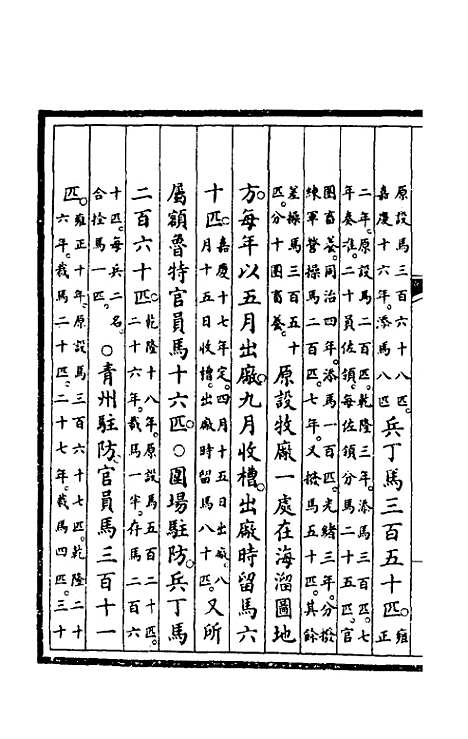 原設馬三百六十八匹
嘉慶十六年。添馬八匹。
兵丁馬三百五十匹。
雍
正
二年。原設馬二百匹。乾隆三年。添馬三百匹。七
年奏准。二十員佐領。每佐領分馬二十五匹。官
圈畜養。同治四年。添馬一百匹。光緒三年。分撥
練軍營操馬二百匹。七年。又撥馬五十匹。其餘
差操馬三百五十
匹。分十圈畜養。
原設牧廠一處在海溜圖地
方。每年以五月出廠。九月收槽。出廠時留馬六
十匹。
嘉慶十七年定。四月十五日出廠。八
月十五日收槽。出廠時留馬八十匹。
又所
屬額魯特官員馬十六匹。○圍場駐防。兵丁馬
二百六十匹。
乾隆十八年。原設馬五百二十匹。
二十六年。裁馬一半。存馬二百六
十匹。每兵二名。
合拴馬一匹。
○青州駐防。官員馬三百十一
匹。
雍正十年。原設馬三百六十七匹。乾隆二十
六年。裁馬二十匹。二十七年。裁馬四匹。三十